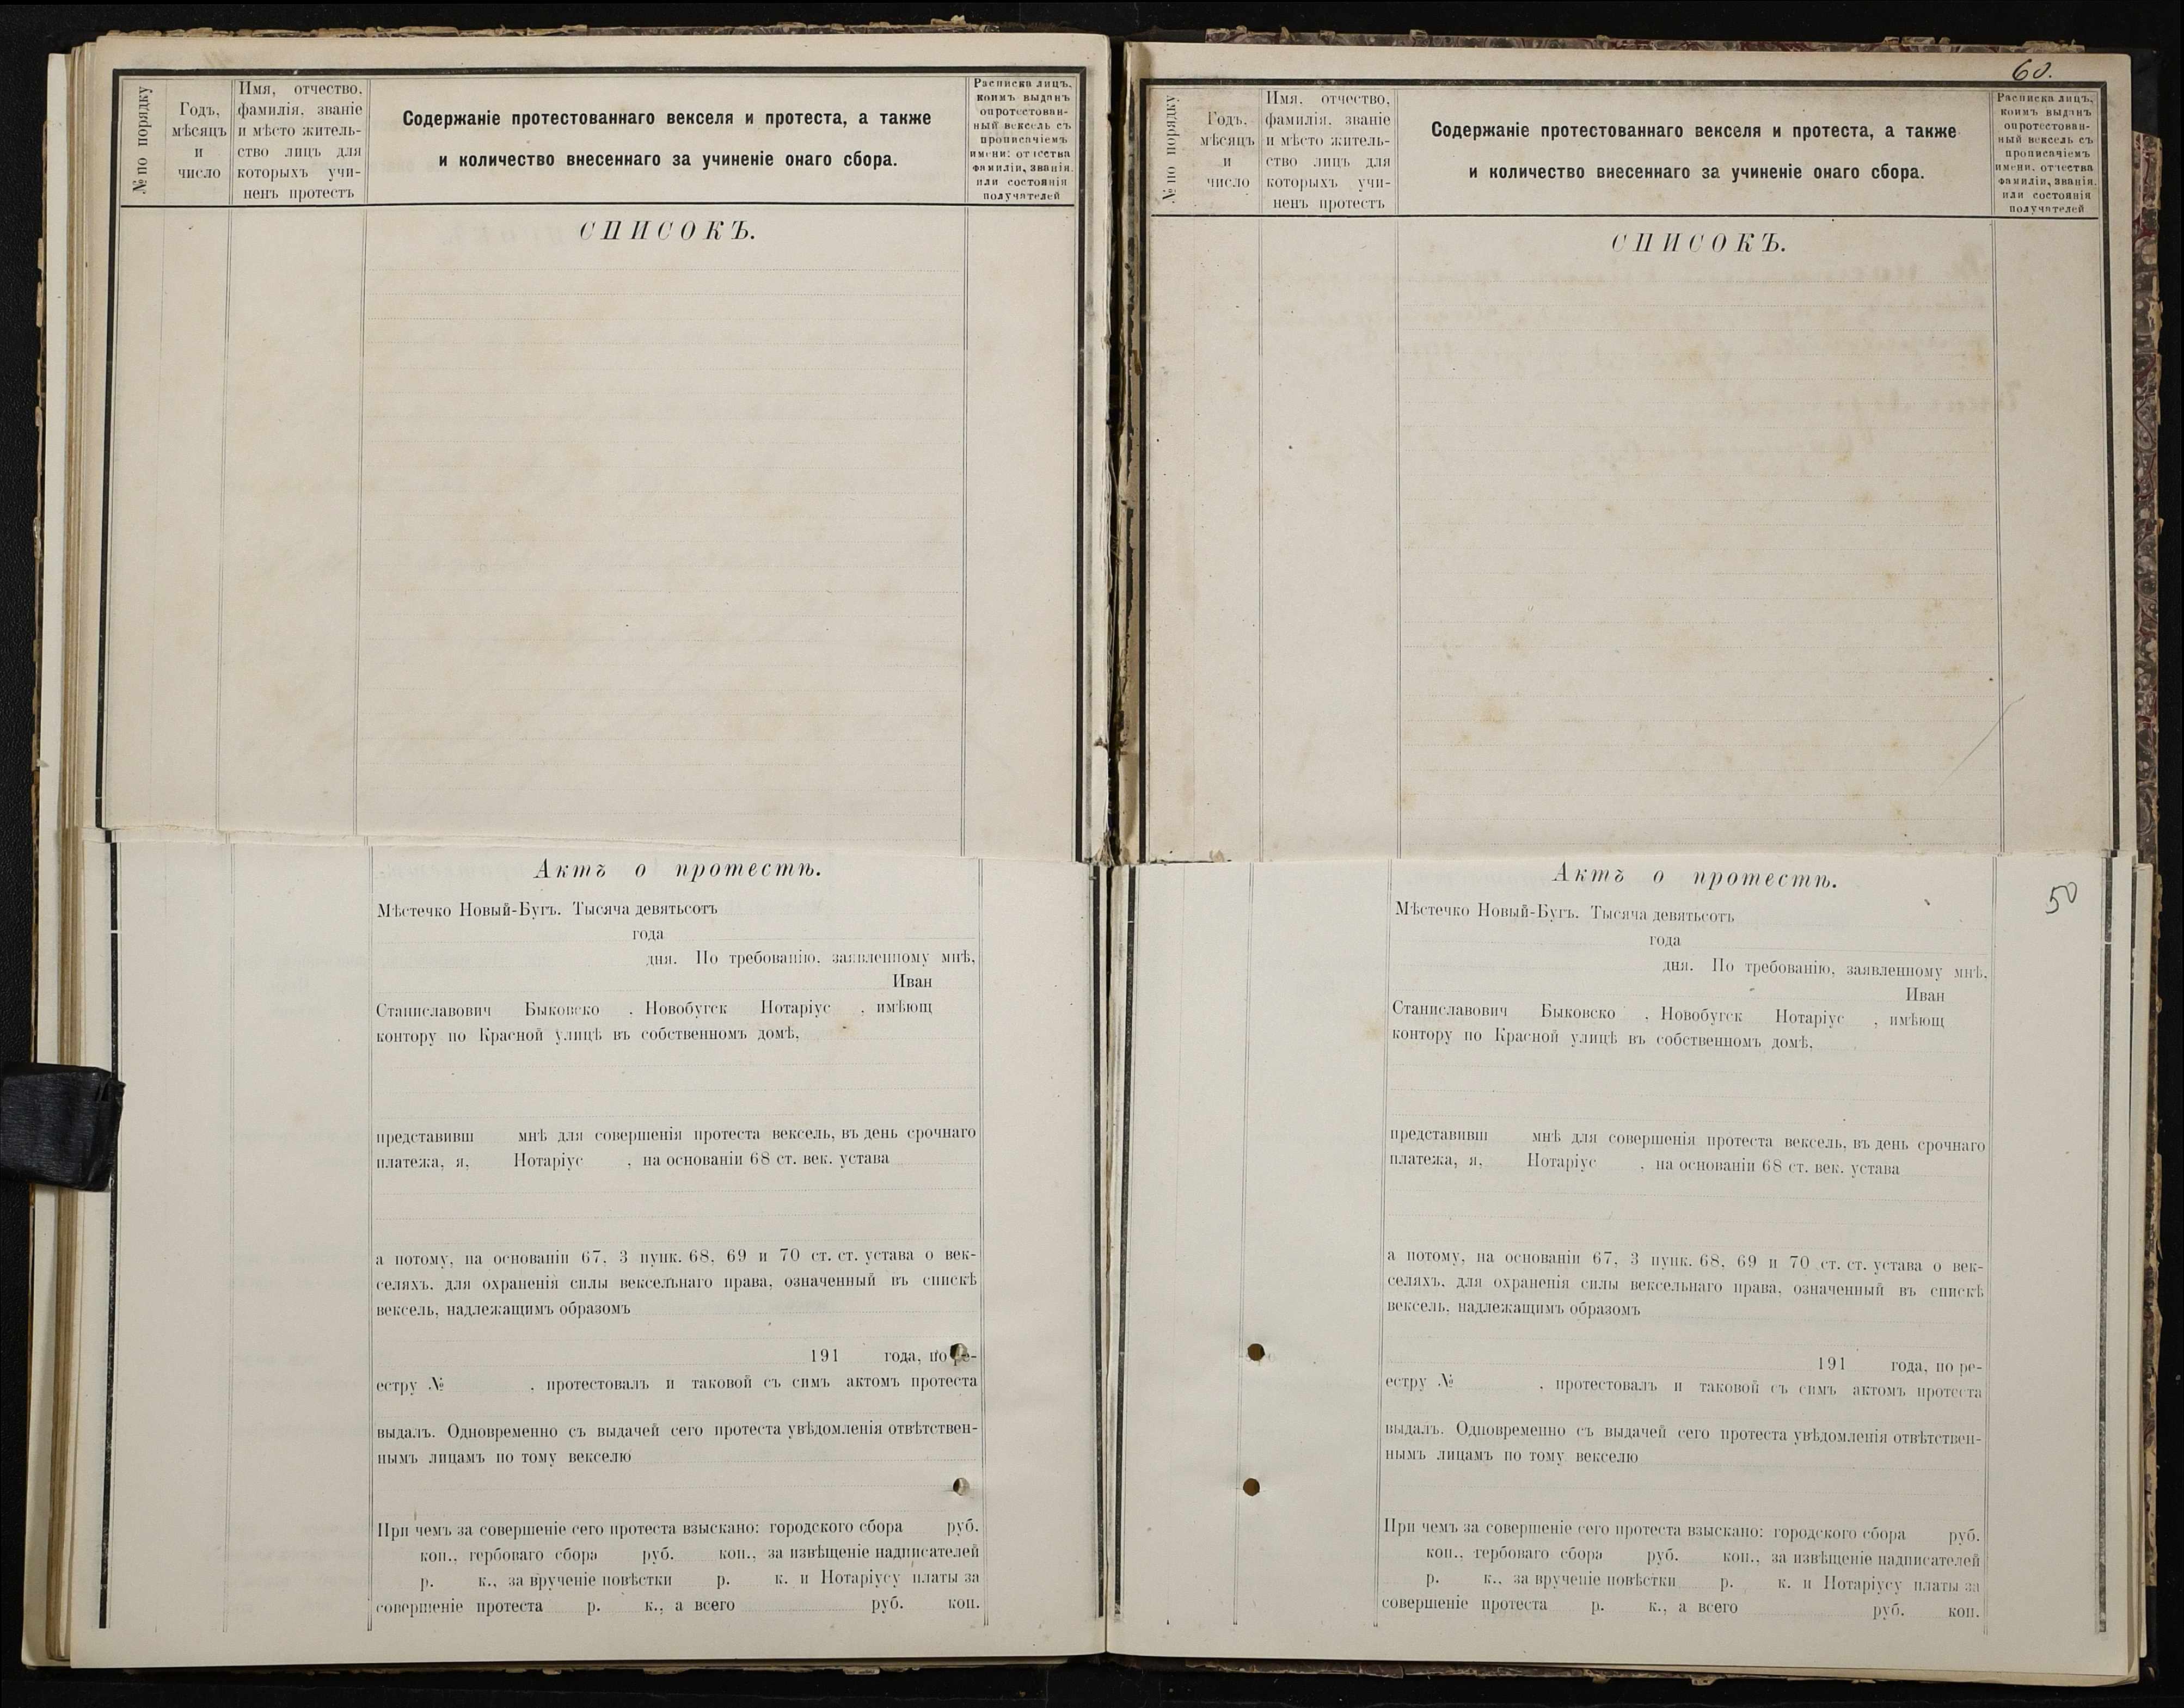 № по порядку
Годъ,
мѣсяцъ
и
число
Имя, отчество,
фамилія, званіе
и мѣсто житель-
ство лицъ для
которыхъ учи-
ненъ протестъ
Содержаніе протестованнаго векселя и протеста, а также
и количество внесеннаго за учиненіе онаго сбора.
Расписка лицъ,
коимъ выданъ
опротестован-
ный вексель съ
прописаніемъ
имени: отчества
фамиліи, званія.
или состоянія
получателей
СПИСОКЪ.
Актъ о протестѣ.
Мѣстечко Новый-Бугъ. Тысяча девятьсотъ
года
дня. По требованію, заявленному мнѣ,
Иван
Станиславович Быковско , Новобугск Нотаріус , имѣющ
контору по Красной улицѣ въ собственномъ домѣ,
представивш мнѣ для совершенія протеста вексель, въ день срочнаго
платежа, я, Нотаріус , на основаніи 68 ст. век. устава
а потому, на основаніи 67, 3 пунк. 68, 69 и 70 ст. ст. устава о век-
селяхъ, для охраненія силы вексельнаго права, означенный въ спискѣ
вексель, надлежащимъ образомъ
191 года, по ре-
естру № , протестовалъ и таковой съ симъ актомъ протеста
выдалъ. Одновременно съ выдачей сего протеста увѣдомленія отвѣтствен-
нымъ лицамъ по тому векселю
При чемъ за совершеніе сего протеста взыскано: городского сбора руб.
коп., гербоваго сбора руб. коп., за извѣщеніе надписателей
р. к., за врученіе повѣстки р. к. и Нотаріусу платы за
совершеніе протеста р. к., а всего руб. коп.
60.
№ по порядку
Годъ,
мѣсяцъ
и
число
Имя, отчество,
фамилія, званіе
и мѣсто житель-
ство лицъ для
которыхъ учи-
ненъ протестъ
Содержаніе протестованнаго векселя и протеста, а также
и количество внесеннаго за учиненіе онаго сбора.
Расписка лицъ,
коимъ выданъ
опротестован-
ный вексель съ
прописаніемъ
имени, отчества
фамиліи, званія.
или состоянія
получателей
СПИСОКЪ.
Актъ о протестѣ.
50
Мѣстечко Новый-Бугъ. Тысяча девятьсотъ
года
дня. По требованію, заявленному мнѣ,
Иван
Станиславович Быковско , Новобугск Нотаріус , имѣющ
контору по Красной улицѣ въ собственномъ домѣ,
представивш мнѣ для совершенія протеста вексель, въ день срочнаго
платежа, я, Нотаріус , на основаніи 68 ст. век. устава
а потому, на основаніи 67, 3 пунк. 68, 69 и 70 ст. ст. устава о век-
селяхъ, для охраненія силы вексельнаго права, означенный въ спискѣ
вексель, надлежащимъ образомъ
191 года, по ре-
естру № , протестовалъ и таковой съ симъ актомъ протеста
выдалъ. Одновременно съ выдачей сего протеста увѣдомленія отвѣтствен-
нымъ лицамъ по тому векселю
При чемъ за совершеніе сего протеста взыскано: городского сбора руб.
коп., гербоваго сбора руб. коп., за извѣщеніе надписателей
р. к., за врученіе повѣстки р. к. и Нотаріусу платы за
совершеніе протеста р. к., а всего руб. коп.